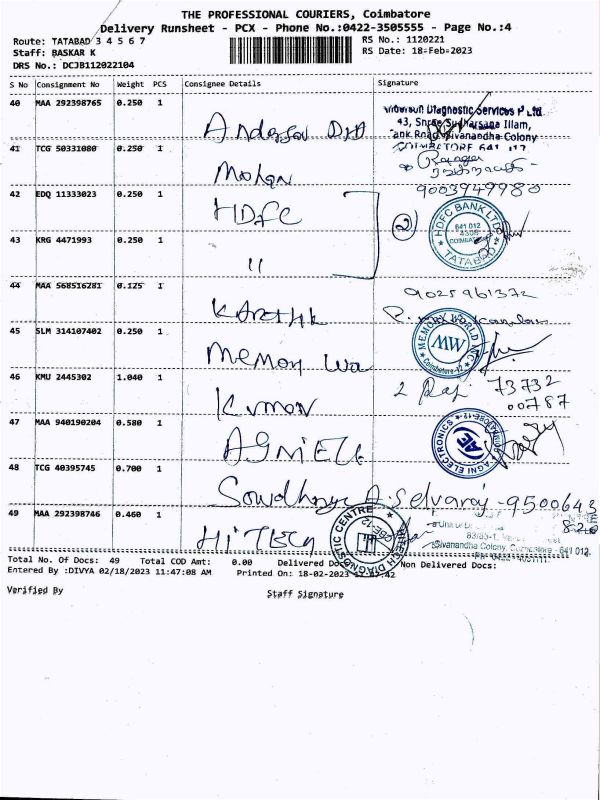 THE PROFESSIONAL COURIERS, Coimbatore
Delivery Runsheet - PCX - Phone No.:0422-3505555 - Page No.:4
Route: TATABAD 3 4 5 6 7
RS No.: 1120221
Staff: BASKAR K
RS Date: 18-Feb-2023
DRS No.: DCJB112022104
S No Consignment No Weight PCS Consignee Details Signature
40 MAA 292398765 0.250 1
Diagnostic Services P Ltd
43, Sudharsana Illam,
Tank Road, Sivanandha Colony
COIMBATORE 641
41 TCG 50331080 0.250 1 Mohan
9003949980
42 EDQ 11333023 0.250 1 HDFC
2
HDFC BANK LTD
641 012
COIMBATORE
TATABAD
43 KRG 4471993 0.250 1 "
44 MAA 568516281 0.125 1 Karthik
9025961372
45 SLM 314107402 0.250 1 Memory
MEMORY WORLD INC
MW
Coimbatore-12
46 KMU 2445302 1.040 1 Kumar
73732
00787
47 MAA 940190204 0.580 1
AGNI ELECTRONICS
AE
48 TCG 40395745 0.700 1 Sowdhanya A. Selvaraj - 9500643
820
49 MAA 292398746 0.460 1 HiTech
HITECH DIAGNOSTIC CENTRE
Sivanandha Colony, Coimbatore - 641 012.
Total No. Of Docs: 49 Total COD Amt: 0.00 Delivered Docs: Non Delivered Docs:
Entered By :DIVYA 02/18/2023 11:47:08 AM Printed On: 18-02-2023
Verified By
Staff Signature